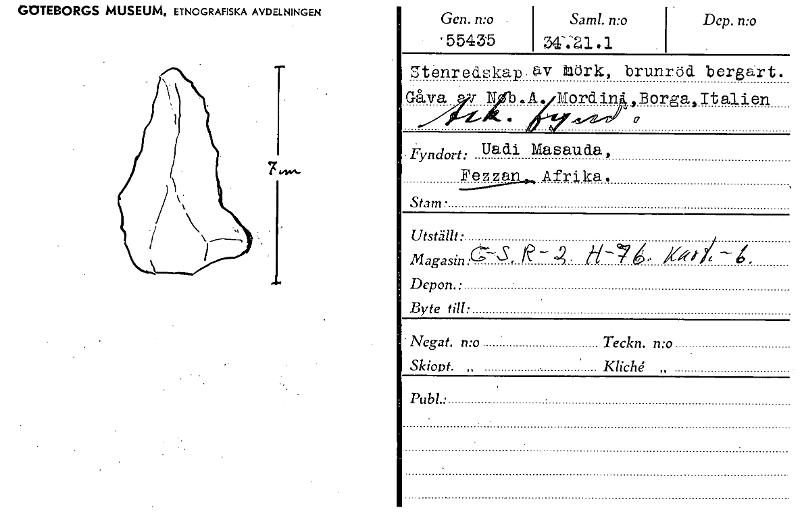 GÖTEBORGS MUSEUM, ETNOGRAFISKA AVDELNINGEN
7 cm
Gen. n:o Saml. n:o Dep. n:o
55435 34.21.1
Stenredskap av mörk, brunröd bergart.
Gåva av Nob.A. Mordini,Borga,Italien
Ark. fynd.
Fyndort: Uadi Masauda,
Fezzan, Afrika.
Stam:
Utställt:
Magasin: G-S. R-2 H-76. Kart.-6.
Depon.:
Byte till:
Negat. n:o Teckn. n:o
Skiopt. „ Kliché „
Publ.: